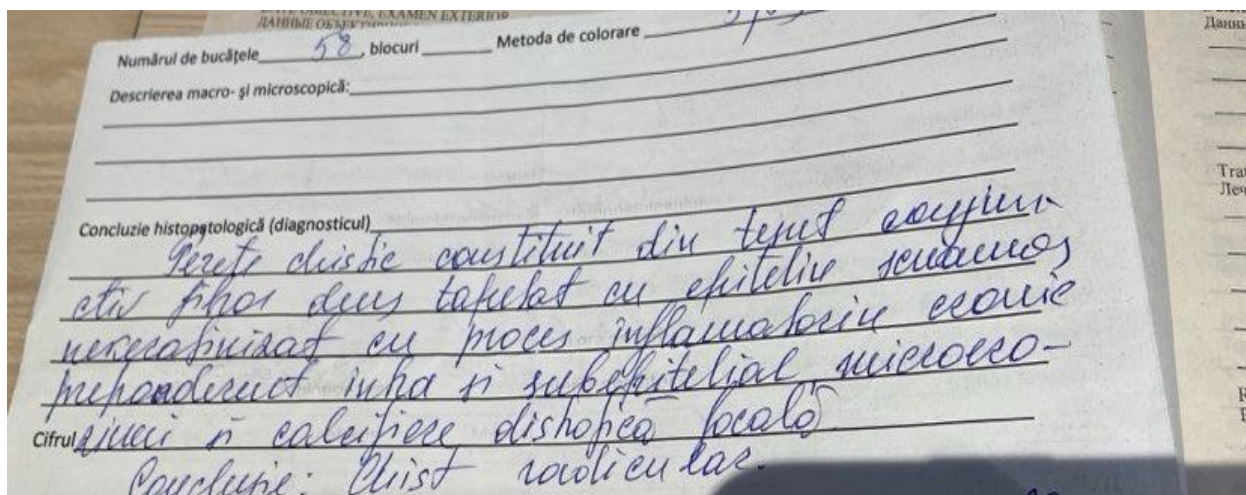 DATE OBJECTIVE, EXAMEN EXTERIOR
Numărul de bucăţele 58, blocuri Metoda de colorare
Descrierea macro- şi microscopică:
Concluzie histopatologică (diagnosticul)
Perete chistic constituit din ţesut conjun-
ctiv fibros dens tapetat cu epiteliu scuamos
nekeratinizat cu proces inflamatoriu cronic
preponderent intra si subepitelial microero-
Cifrul ziuni si calcifiere distrofică focală
Concluzie: Chist radicular.
Данн